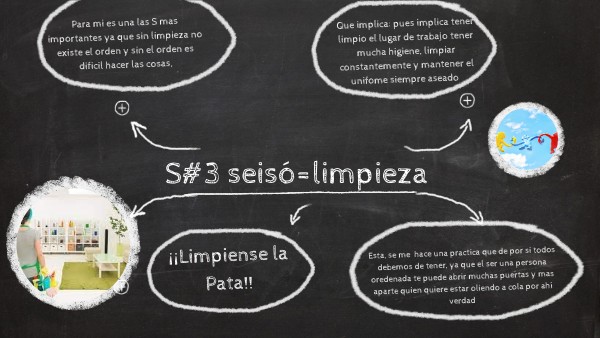 Para mi es una las S mas
importantes ya que sin limpieza no
existe el orden y sin el orden es
dificil hacer las cosas,
Que implica: pues implica tener
limpio el lugar de trabajo tener
mucha higiene, limpiar
constantemente y mantener el
unifome siempre aseado
S#3 seisó=limpieza
¡¡Limpiense la
Pata!!
Esta, se me hace una practica que de por si todos
debemos de tener, ya que el ser una persona
ordenada te puede abrir muchas puertas y mas
aparte quien quiere estar oliendo a cola por ahi
verdad